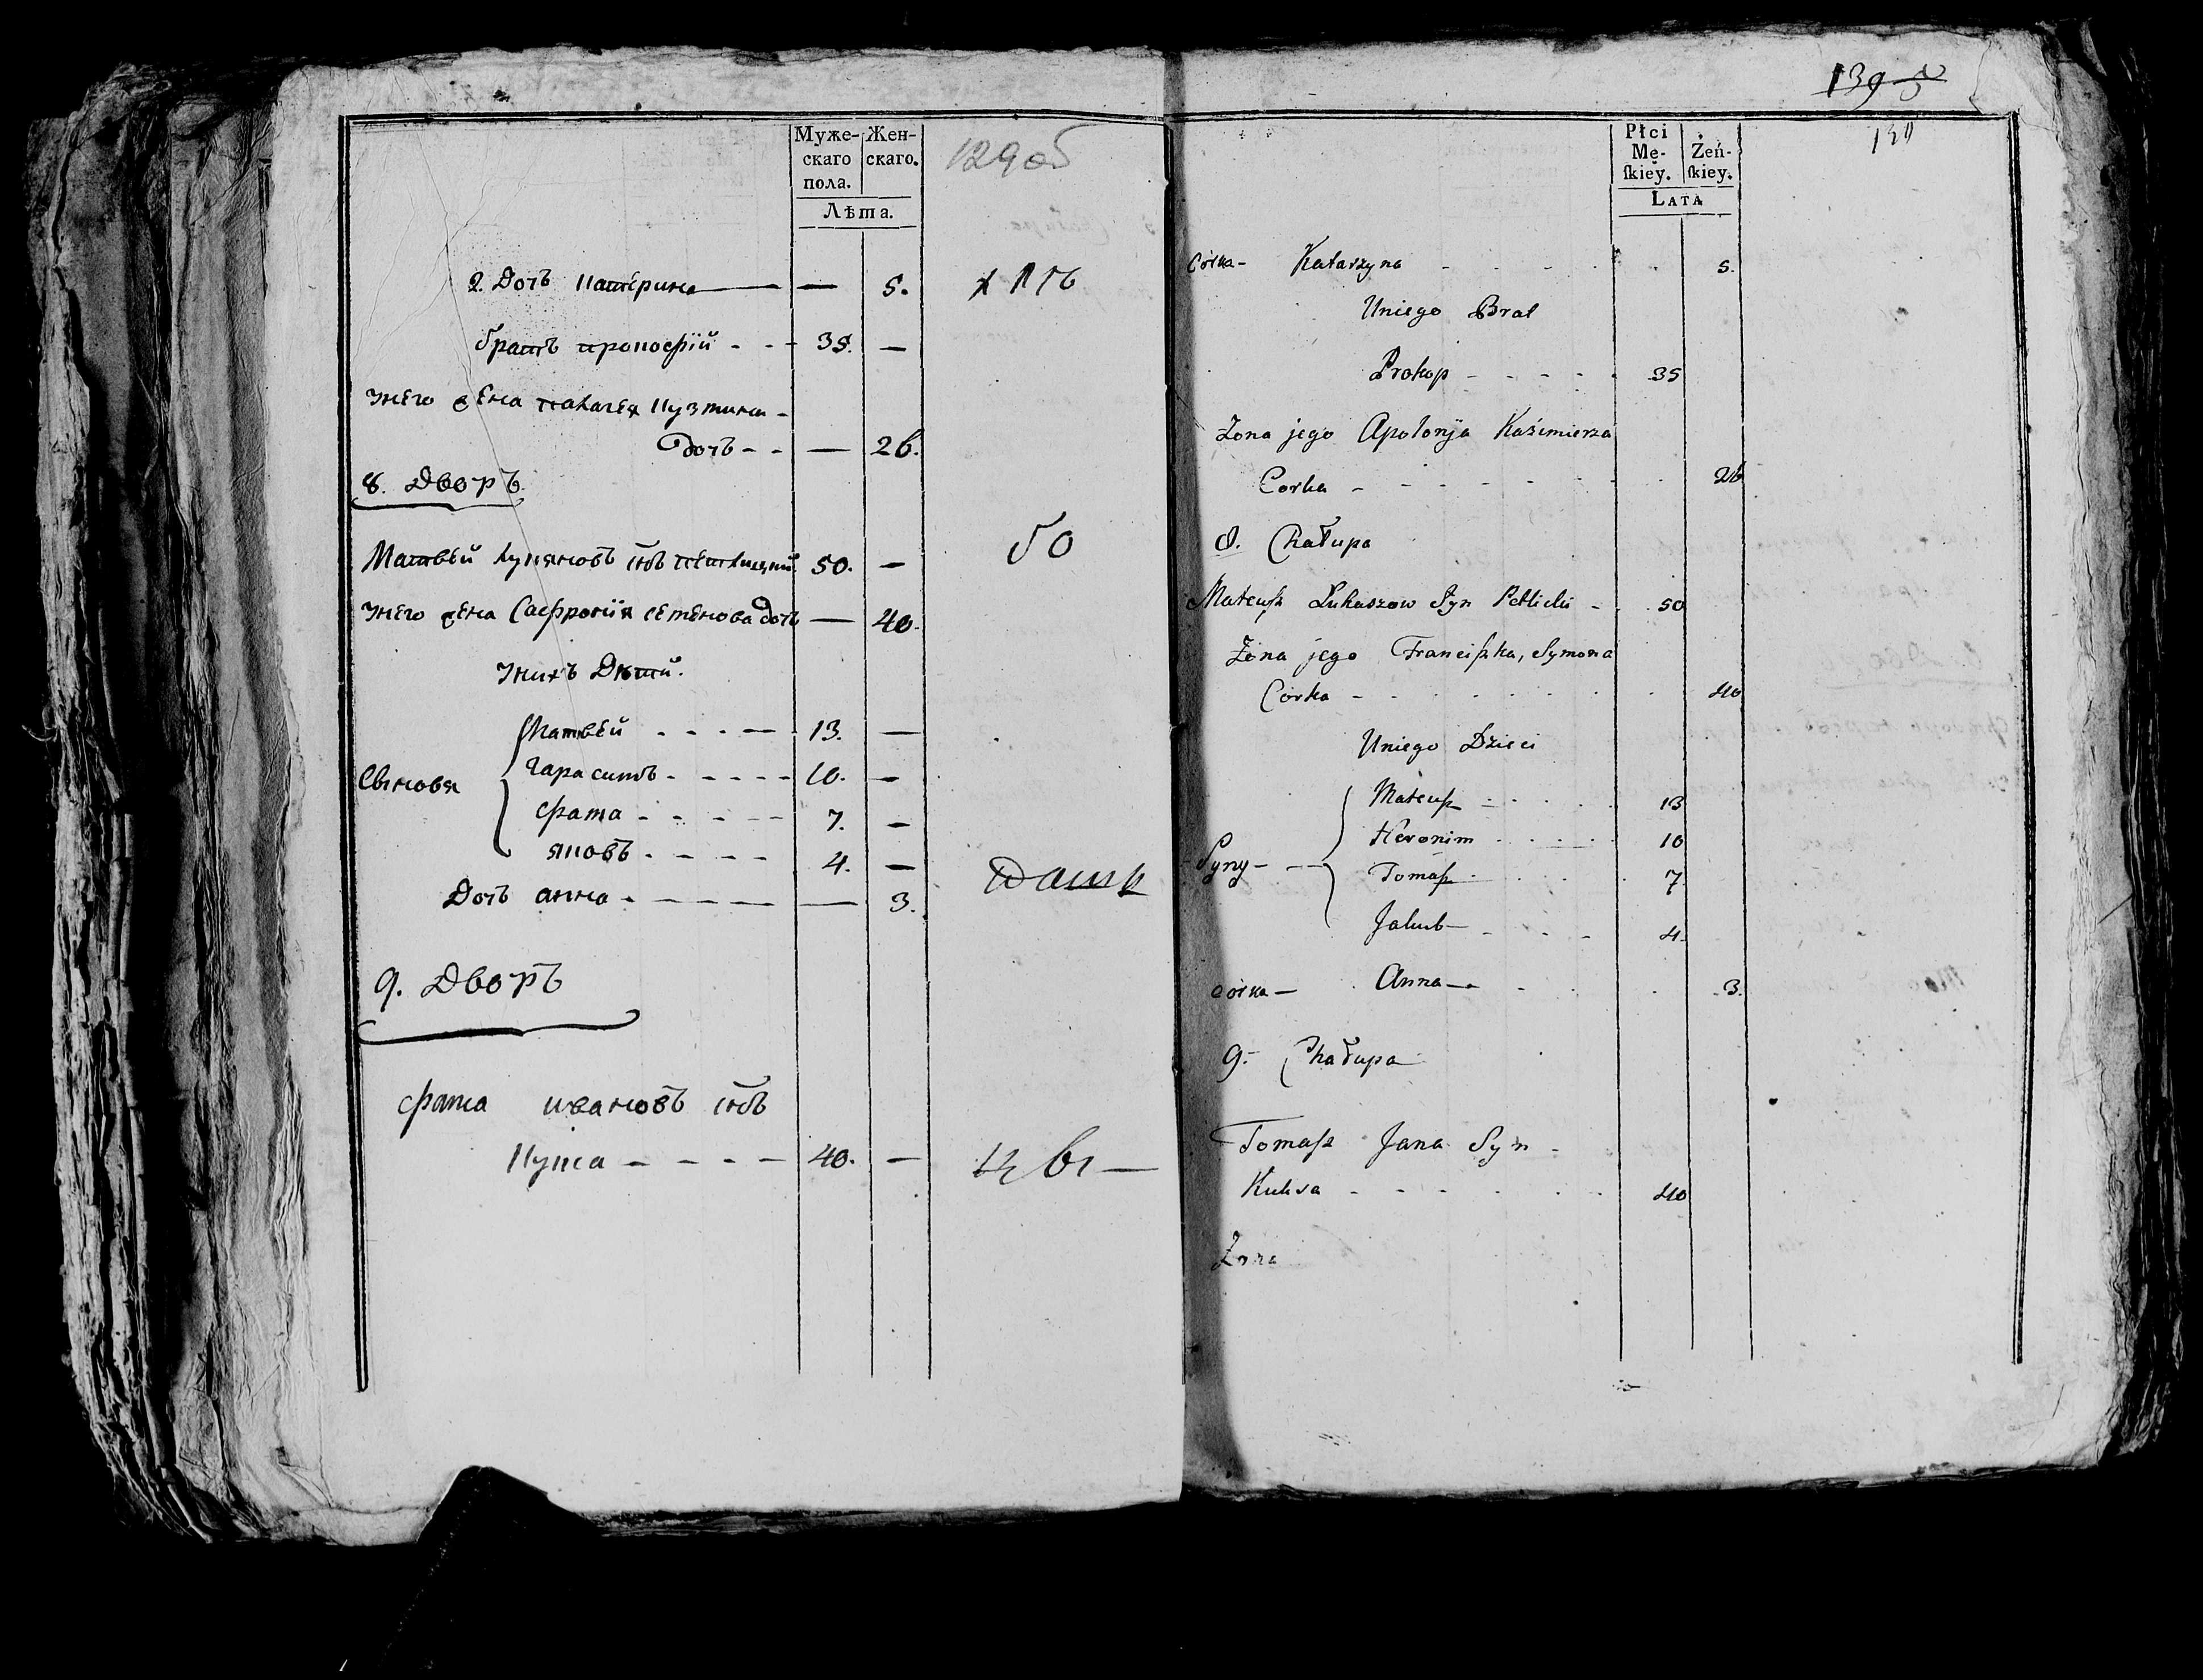 Муже-
скаго
пола.
Жен-
скаго.
Лѣта.
129 об
2. Дочъ катерина — 5.
братъ прокофiй - - 35. —
унего жена палагея кузмина -
дочъ - - — 26.
8. Дворъ
Матвей лукяновъ снъ петлицкий. 50. —
унего жена Сафронiя семенова дочъ — 40.
унихъ Дѣти.
Матвей . . . — 13. —
Сыновя гарасимъ - - - - 10. —
фама - - - - 7. —
яковъ - - - - 4. —
Дочъ анна - — — — 3.
50
9. Дворъ
фама ивановъ снъ
кукса - - - - 40. —
139
130
Płci
Mę-
ſkiey.
Żeń-
ſkiey.
LATA
Corka - Katarzyna - - - 5.
Uniego Brat
Prokop - - - - - 35
Zona jego Apolonija Kazimierza
Corka - - - - - - 26
8. Chałupa
Mateuſz Lukaszow Syn Petlicki - 50
Zona jego Franciſzka, Symona
Corka - - - - - - 40
Uniego Dzieci
Mateuſz - - - - 13
Heronim - - - - 10
Syny - - Tomaſz - - - 7
Jakub - - - - 4.
Corka - Anna - - - 3.
9. Chałupa
Tomaſz Jana Syn -
Kuksa - - - - - - 40
Zona